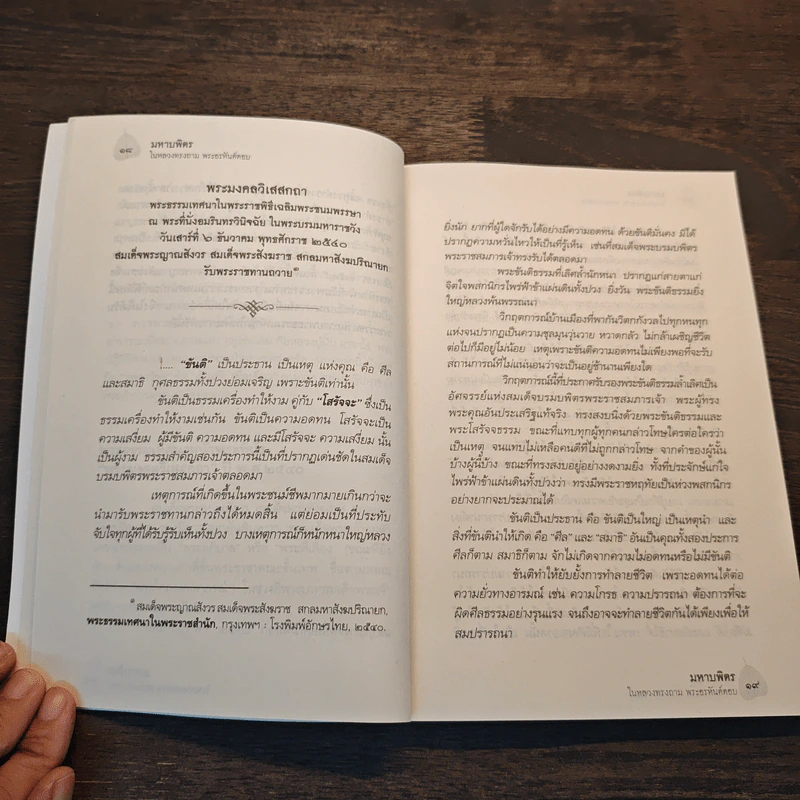 ๑๘
มหาบพิตร
ในหลวงทรงถาม พระอรหันต์ตอบ
พระมงคลวิเสสกถา
พระธรรมเทศนาในพระราชพิธีเฉลิมพระชนมพรรษา
ณ พระที่นั่งอมรินทรวินิจฉัย ในพระบรมมหาราชวัง
วันเสาร์ที่ ๖ ธันวาคม พุทธศักราช ๒๕๔๐
สมเด็จพระญาณสังวร สมเด็จพระสังฆราช สกลมหาสังฆปริณายก
รับพระราชทานถวาย
!.... “ขันติ” เป็นประธาน เป็นเหตุ แห่งคุณ คือ ศีล
และสมาธิ กุศลธรรมทั้งปวงย่อมเจริญ เพราะขันติเท่านั้น
ขันติเป็นธรรมเครื่องทำให้งาม คู่กับ “โสรัจจะ” ซึ่งเป็น
ธรรมเครื่องทำให้งามเช่นกัน ขันติเป็นความอดทน โสรัจจะเป็น
ความเสงี่ยม ผู้มีขันติ ความอดทน และมีโสรัจจะ ความเสงี่ยม นั้น
เป็นผู้งาม ธรรมสำคัญสองประการนี้เป็นที่ปรากฏเด่นชัดในสมเด็จ
บรมบพิตรพระราชสมภารเจ้าตลอดมา
เหตุการณ์ที่เกิดขึ้นในพระชนม์ชีพมากมายเกินกว่าจะ
นำมารับพระราชทานกล่าวถึงได้หมดสิ้น แต่ย่อมเป็นที่ประทับ
จับใจทุกผู้ที่ได้รับรู้รับเห็นทั้งปวง บางเหตุการณ์ก็หนักหนาใหญ่หลวง
สมเด็จพระญาณสังวร สมเด็จพระสังฆราช สกลมหาสังฆปริณายก,
พระธรรมเทศนาในพระราชสำนัก, กรุงเทพฯ : โรงพิมพ์อักษรไทย, ๒๕๔๐.
ยิ่งนัก ยากที่ผู้ใดจักรับได้อย่างมีความอดทน ด้วยขันติมั่นคง มิได้
ปรากฏความหวั่นไหวให้เป็นที่รู้เห็น เช่นที่สมเด็จพระบรมบพิตร
พระราชสมภารเจ้าทรงรับได้ตลอดมา
พระขันติธรรมที่เลิศล้ำนักหนา ปรากฏแก่สายตาแก่
จิตใจพสกนิกรไพร่ฟ้าข้าแผ่นดินทั้งปวง ยิ่งวัน พระขันติธรรมยิ่ง
ใหญ่หลวงพ้นพรรณนา
วิกฤตการณ์บ้านเมืองที่พากันวิตกกังวลไปทุกหนทุก
แห่งจนปรากฏเป็นความชุลมุนวุ่นวาย หวาดกลัว ไม่กล้าเผชิญชีวิต
ต่อไปก็มีอยู่ไม่น้อย เหตุเพราะขันติความอดทนไม่เพียงพอที่จะรับ
สถานการณ์ที่ไม่แน่นอนว่าจะเป็นอยู่ช้านานเพียงใด
วิกฤตการณ์นี้ที่ประกาศรับรองพระขันติธรรมล้ำเลิศเป็น
อัศจรรย์แห่งสมเด็จบรมบพิตรพระราชสมภารเจ้า พระผู้ทรง
พระคุณอันประเสริฐแท้จริง ทรงสงบนิ่งด้วยพระขันติธรรมและ
พระโสรัจธรรม ขณะที่แทบทุกผู้ทุกคนกล่าวโทษใครต่อใครว่า
เป็นเหตุ จนแทบไม่เหลือคนดีที่ไม่ถูกกล่าวโทษ จากคำของผู้นั้น
บ้างผู้นี้บ้าง ขณะที่ทรงสงบอยู่อย่างงดงามยิ่ง ทั้งที่ประจักษ์แก่ใจ
ไพร่ฟ้าข้าแผ่นดินทั้งปวงว่า ทรงมีพระราชหฤทัยเป็นห่วงพสกนิกร
อย่างยากจะประมาณได้
ขันติเป็นประธาน คือ ขันติเป็นใหญ่ เป็นเหตุนำ และ
สิ่งที่ขันตินำให้เกิด คือ “ศีล” และ “สมาธิ” อันเป็นคุณทั้งสองประการ
ศีลก็ตาม สมาธิก็ตาม จักไม่เกิดจากความไม่อดทนหรือไม่มีขันติ
ขันติทำให้ยับยั้งการทำลายชีวิต เพราะอดทนได้ต่อ
ความยั่วทางอารมณ์ เช่น ความโกรธ ความปรารถนา ต้องการที่จะ
ผิดศีลธรรมอย่างรุนแรง จนถึงอาจจะทำลายชีวิตกันได้เพียงเพื่อให้
สมปรารถนา
มหาบพิตร
ในหลวงทรงถาม พระอรหันต์ตอบ
๑๙